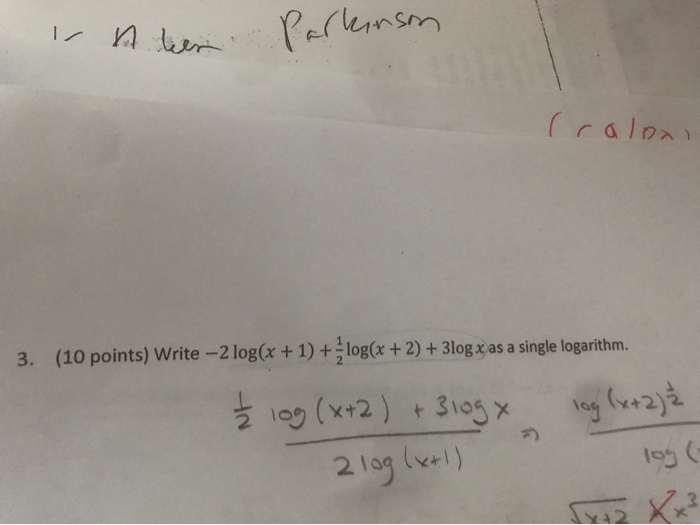 Parkinson
3. (10 points) Write −2 log(x + 1) + 1/2 log(x + 2) + 3log x as a single logarithm.
1/2 log (x+2) + 3log x
2 log (x+1)
⇒
log (x+2)^1/2
log (
√x+2 x^3